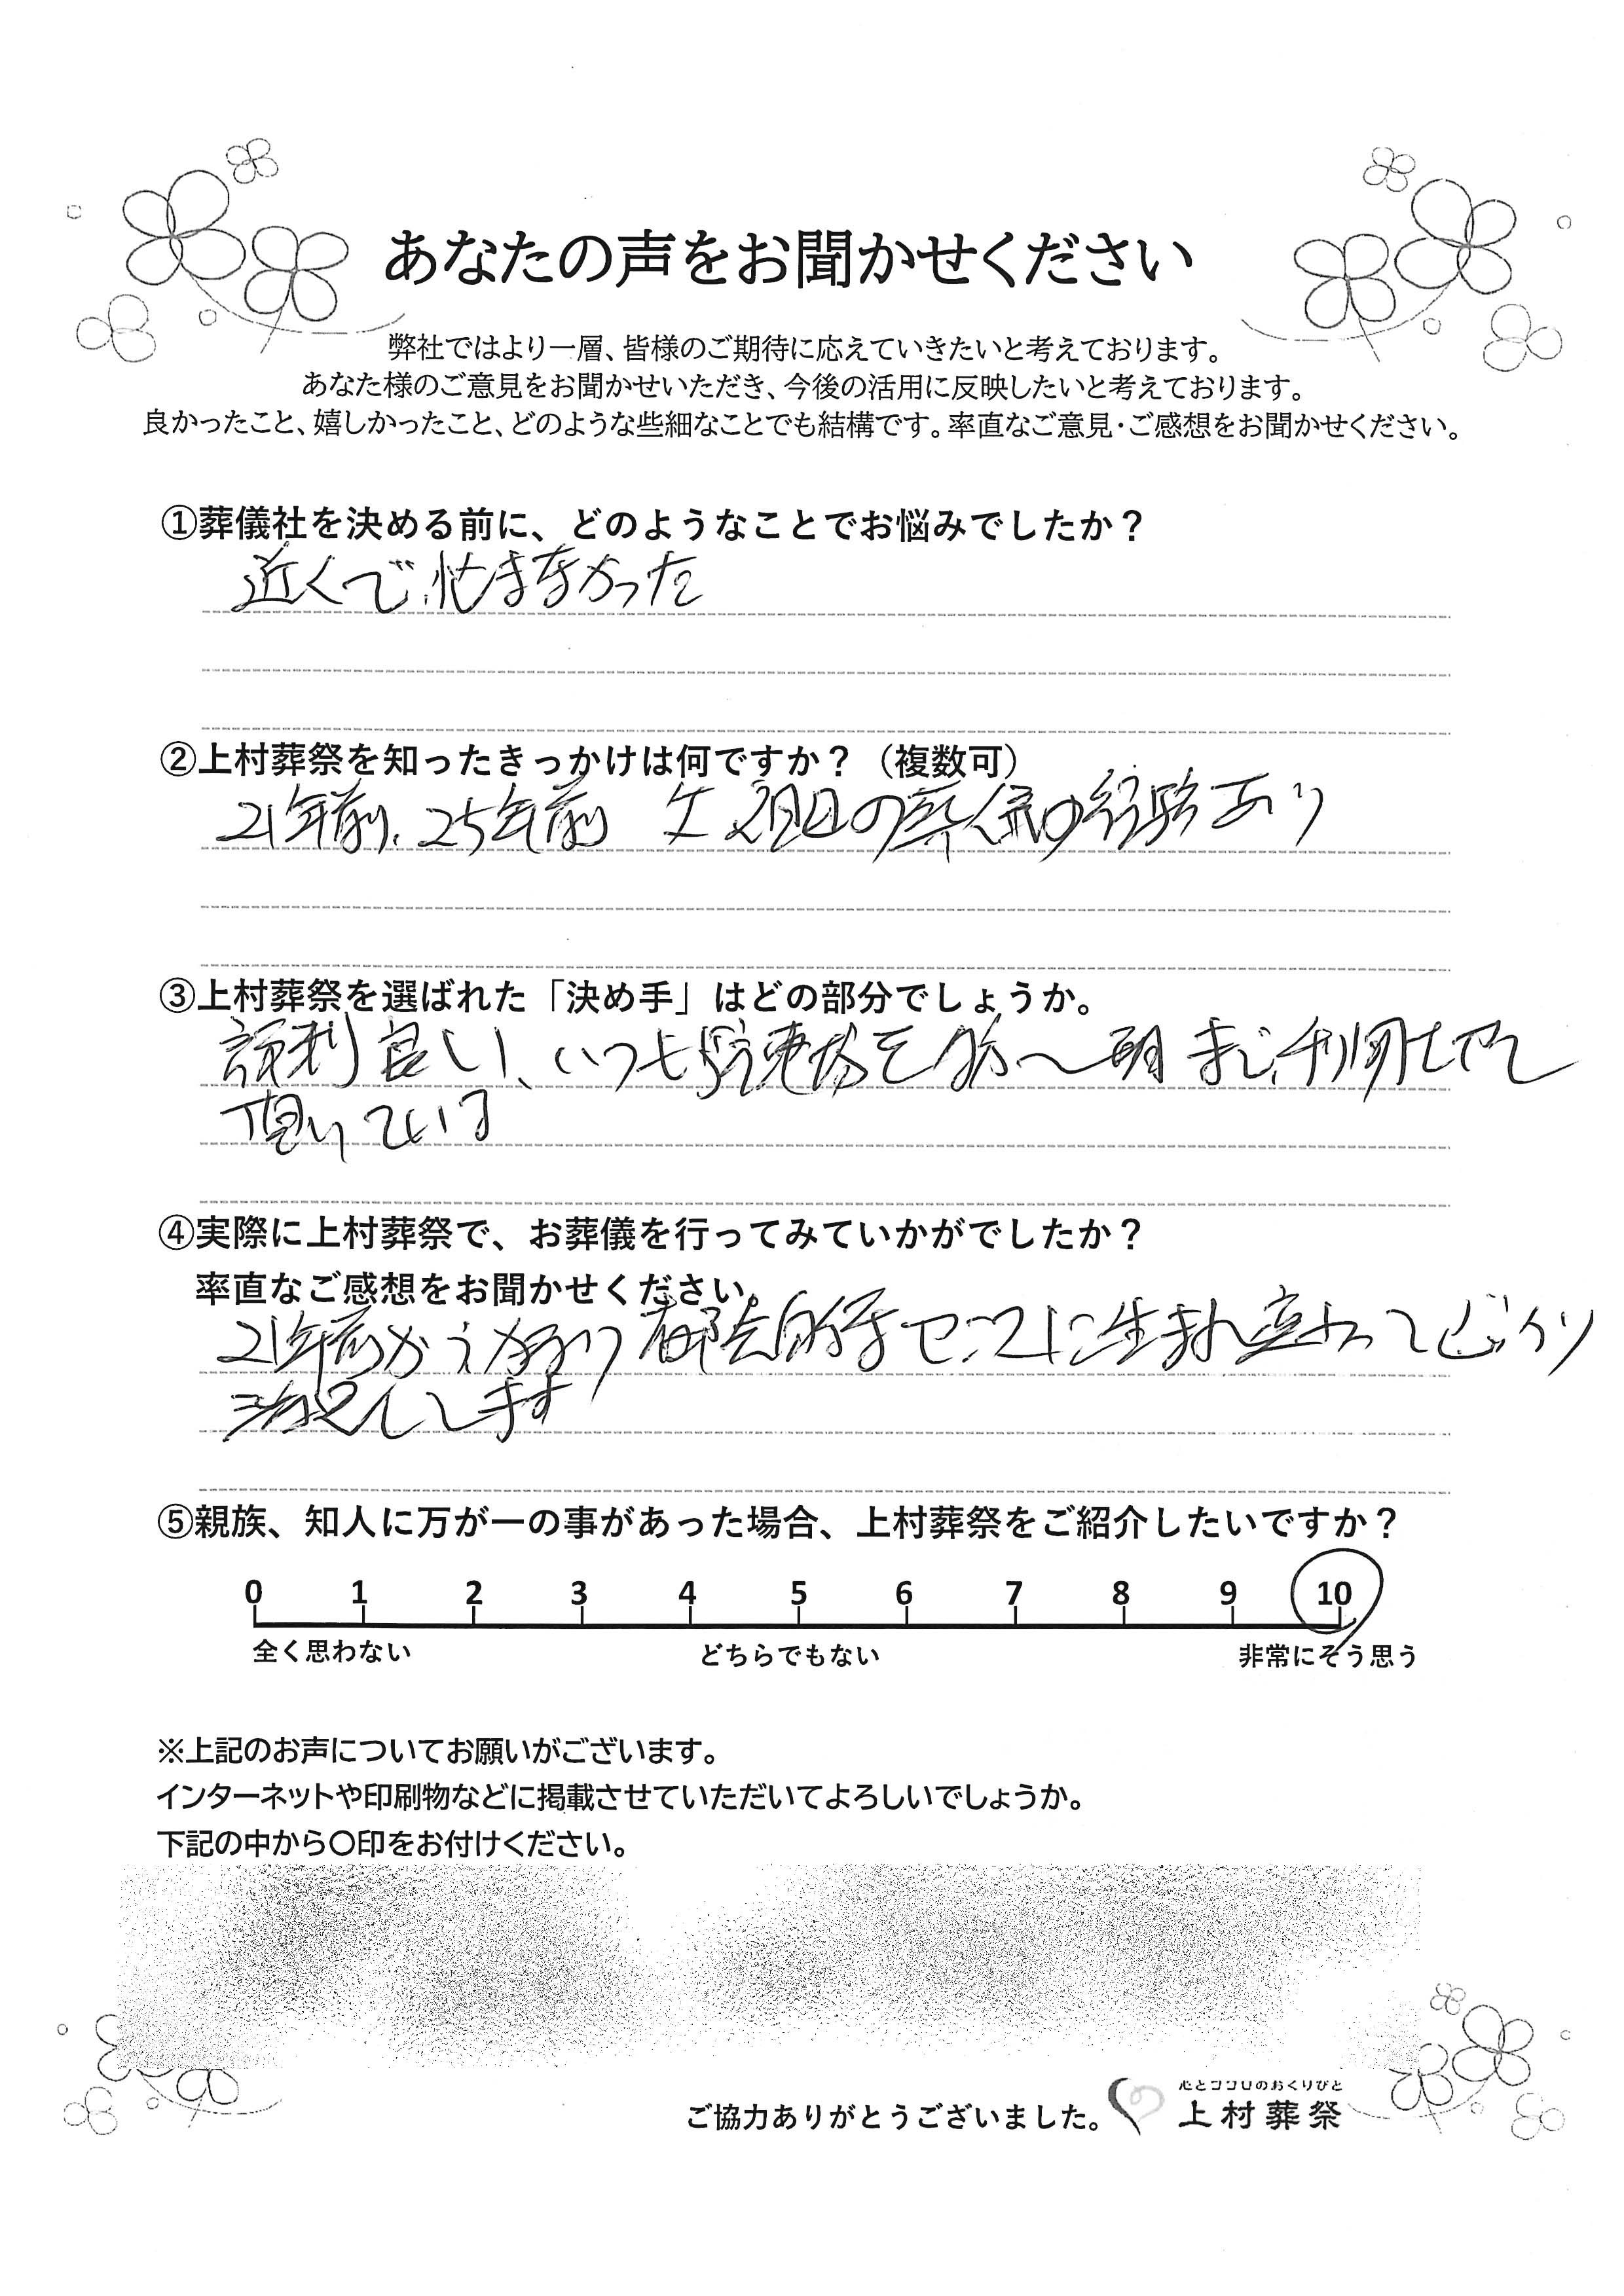 あなたの声をお聞かせください
弊社ではより一層、皆様のご期待に応えていきたいと考えております。
あなた様のご意見をお聞かせいただき、今後の活用に反映したいと考えております。
良かったこと、嬉しかったこと、どのような些細なことでも結構です。率直なご意見・ご感想をお聞かせください。
①葬儀社を決める前に、どのようなことでお悩みでしたか？
近くで、悩まなかった
②上村葬祭を知ったきっかけは何ですか？（複数可）
21年前、25年前 父 祖母の葬儀の経験あり
③上村葬祭を選ばれた「決め手」はどの部分でしょうか。
評判良し、いつも駐車場を 〜朝まで、利用させて
頂いている
④実際に上村葬祭で、お葬儀を行ってみていかがでしたか？
率直なご感想をお聞かせください。
21年前からかなり都会的なセンスに生まれ変わってびっくり
満足します
⑤親族、知人に万が一の事があった場合、上村葬祭をご紹介したいですか？
0 1 2 3 4 5 6 7 8 9 10
全く思わない どちらでもない 非常にそう思う
※上記のお声についてお願いがございます。
インターネットや印刷物などに掲載させていただいてよろしいでしょうか。
下記の中から〇印をお付けください。
心とココロのおくりびと
ご協力ありがとうございました。 上村葬祭